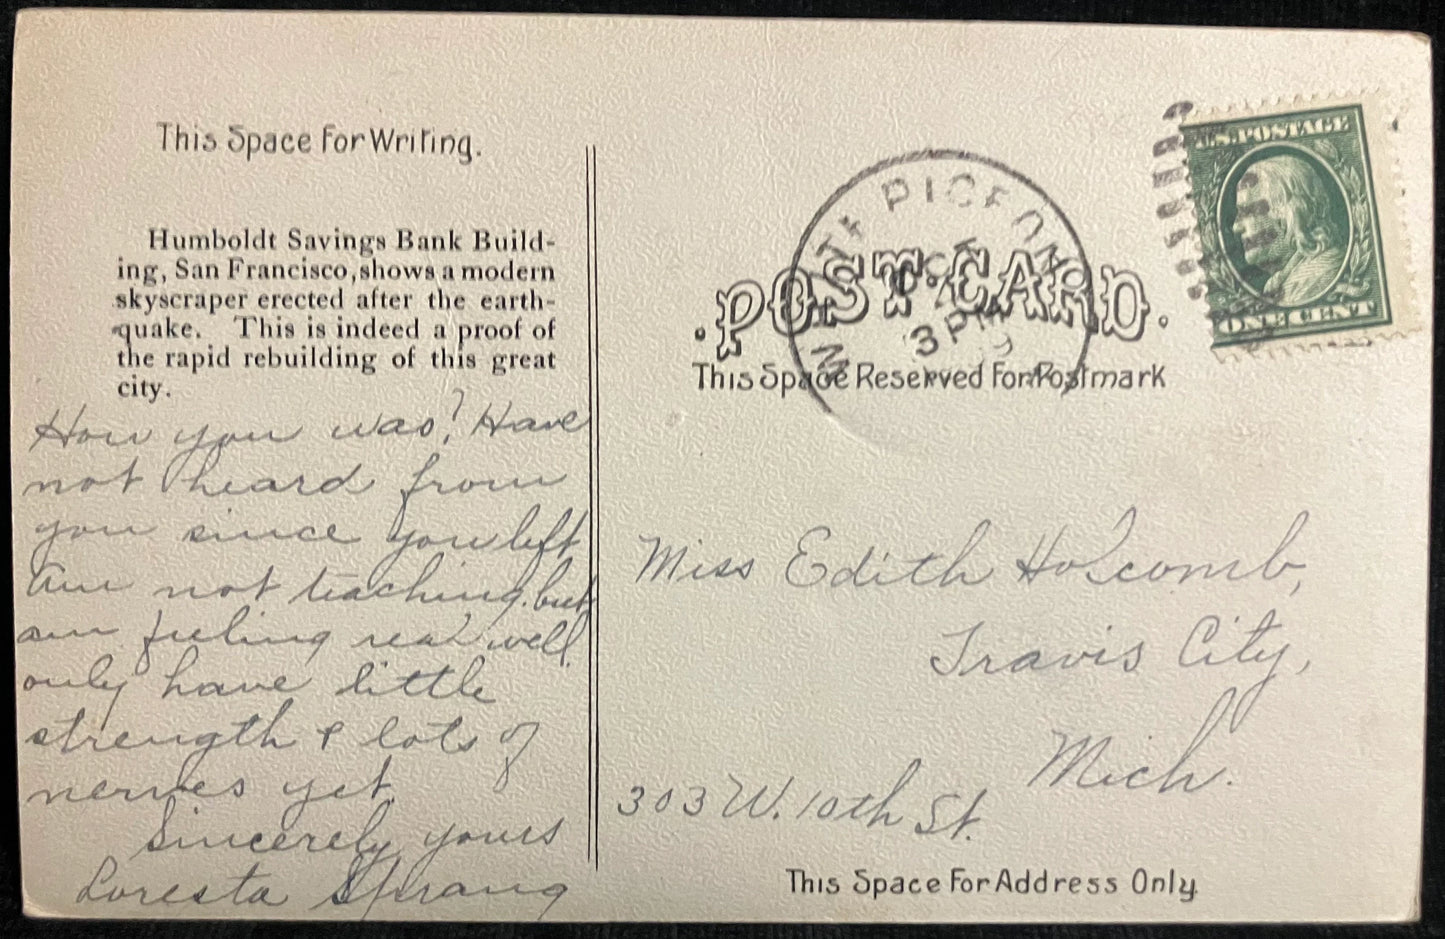 This Space For Writing.
Humboldt Savings Bank Build-
ing, San Francisco, shows a modern
skyscraper erected after the earth-
quake. This is indeed a proof of
the rapid rebuilding of this great
city.
How you was? Have
not heard from
you since you left
Am not teaching, but
am feeling real well.
only have little
strength & lots of
nerves yet.
Sincerely yours
Loresta Sprang
U.S. POSTAGE
ONE CENT
PICFORD
3 PM
.POST CARD.
This Space Reserved For Postmark
Miss Edith Holcomb,
Travis City,
Mich.
303 W. 10th St.
This Space For Address Only